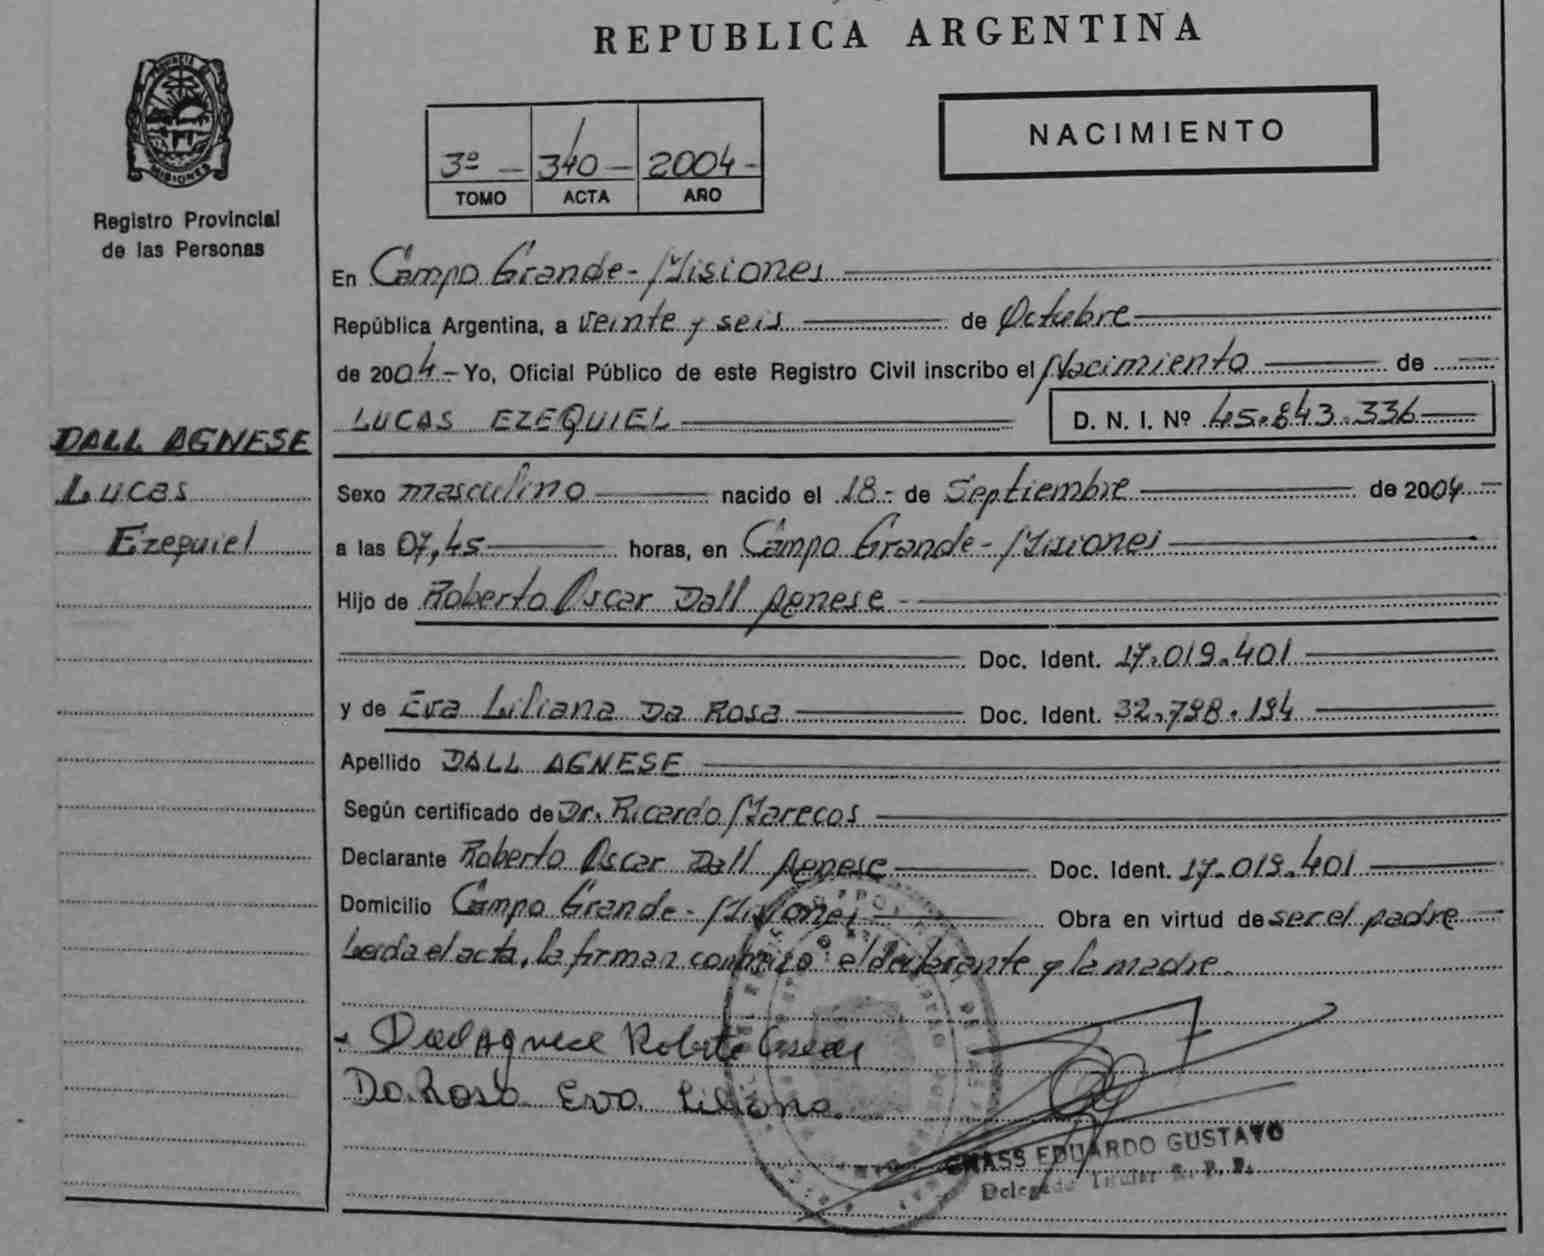 REPUBLICA ARGENTINA
PROVINCIA DE
MISIONES
Registro Provincial
de las Personas
3º - 340 - 2004 -
TOMO ACTA AÑO
NACIMIENTO
En Campo Grande - Misiones
República Argentina, a veinte y seis de Octubre
de 2004 - Yo, Oficial Público de este Registro Civil inscribo el Nacimiento de
LUCAS EZEQUIEL D. N. I. Nº 45.843.336
DALL AGNESE
Lucas
Ezequiel
Sexo masculino nacido el 18 - de Septiembre de 2004
a las 07,45 horas, en Campo Grande - Misiones
Hijo de Roberto Oscar Dall Agnese -
Doc. Ident. 17.019.401
y de Eva Liliana Da Rosa Doc. Ident. 32.798.194
Apellido DALL AGNESE
Según certificado de Dr. Ricardo Marecos
Declarante Roberto Oscar Dall Agnese Doc. Ident. 17.019.401
Domicilio Campo Grande - Misiones Obra en virtud de ser el padre
Leida el acta, la firman conmigo el declarante y la madre.
Dall Agnese Roberto Oscar
Da Rosa Eva Liliana
EDUARDO GUSTAVO
Delegado Titular R. P. P.